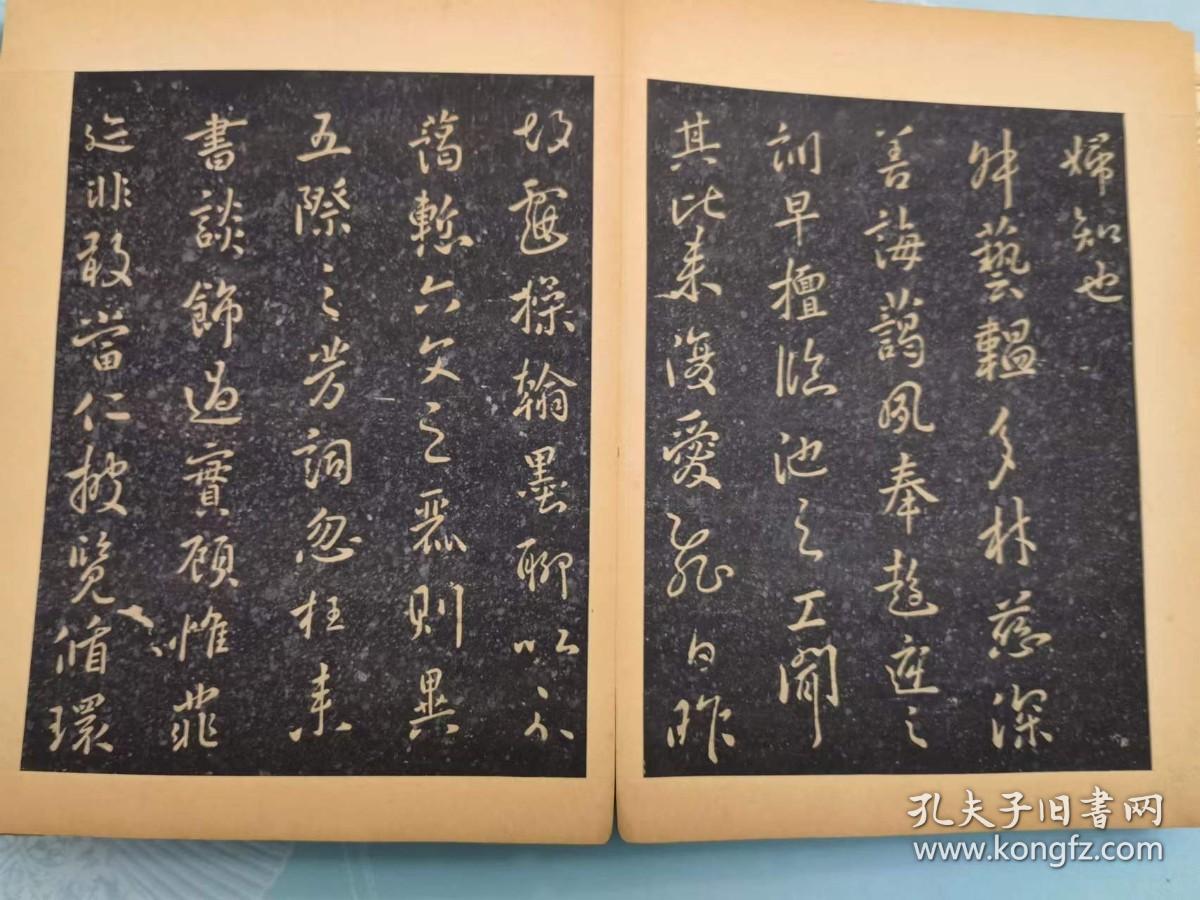 婦知也
叔藝韞多材慈深
善誨藹夙奉趨庭之
訓早擅臨池之工聞
其比来復愛飛白昨
故戲操翰墨聊以示
藹慙六文之麗則異
五際之芳詞忽枉来
書談飾過實顧惟菲
迹非敢當仁披覽循環
孔夫子旧书网
www.kongfz.com